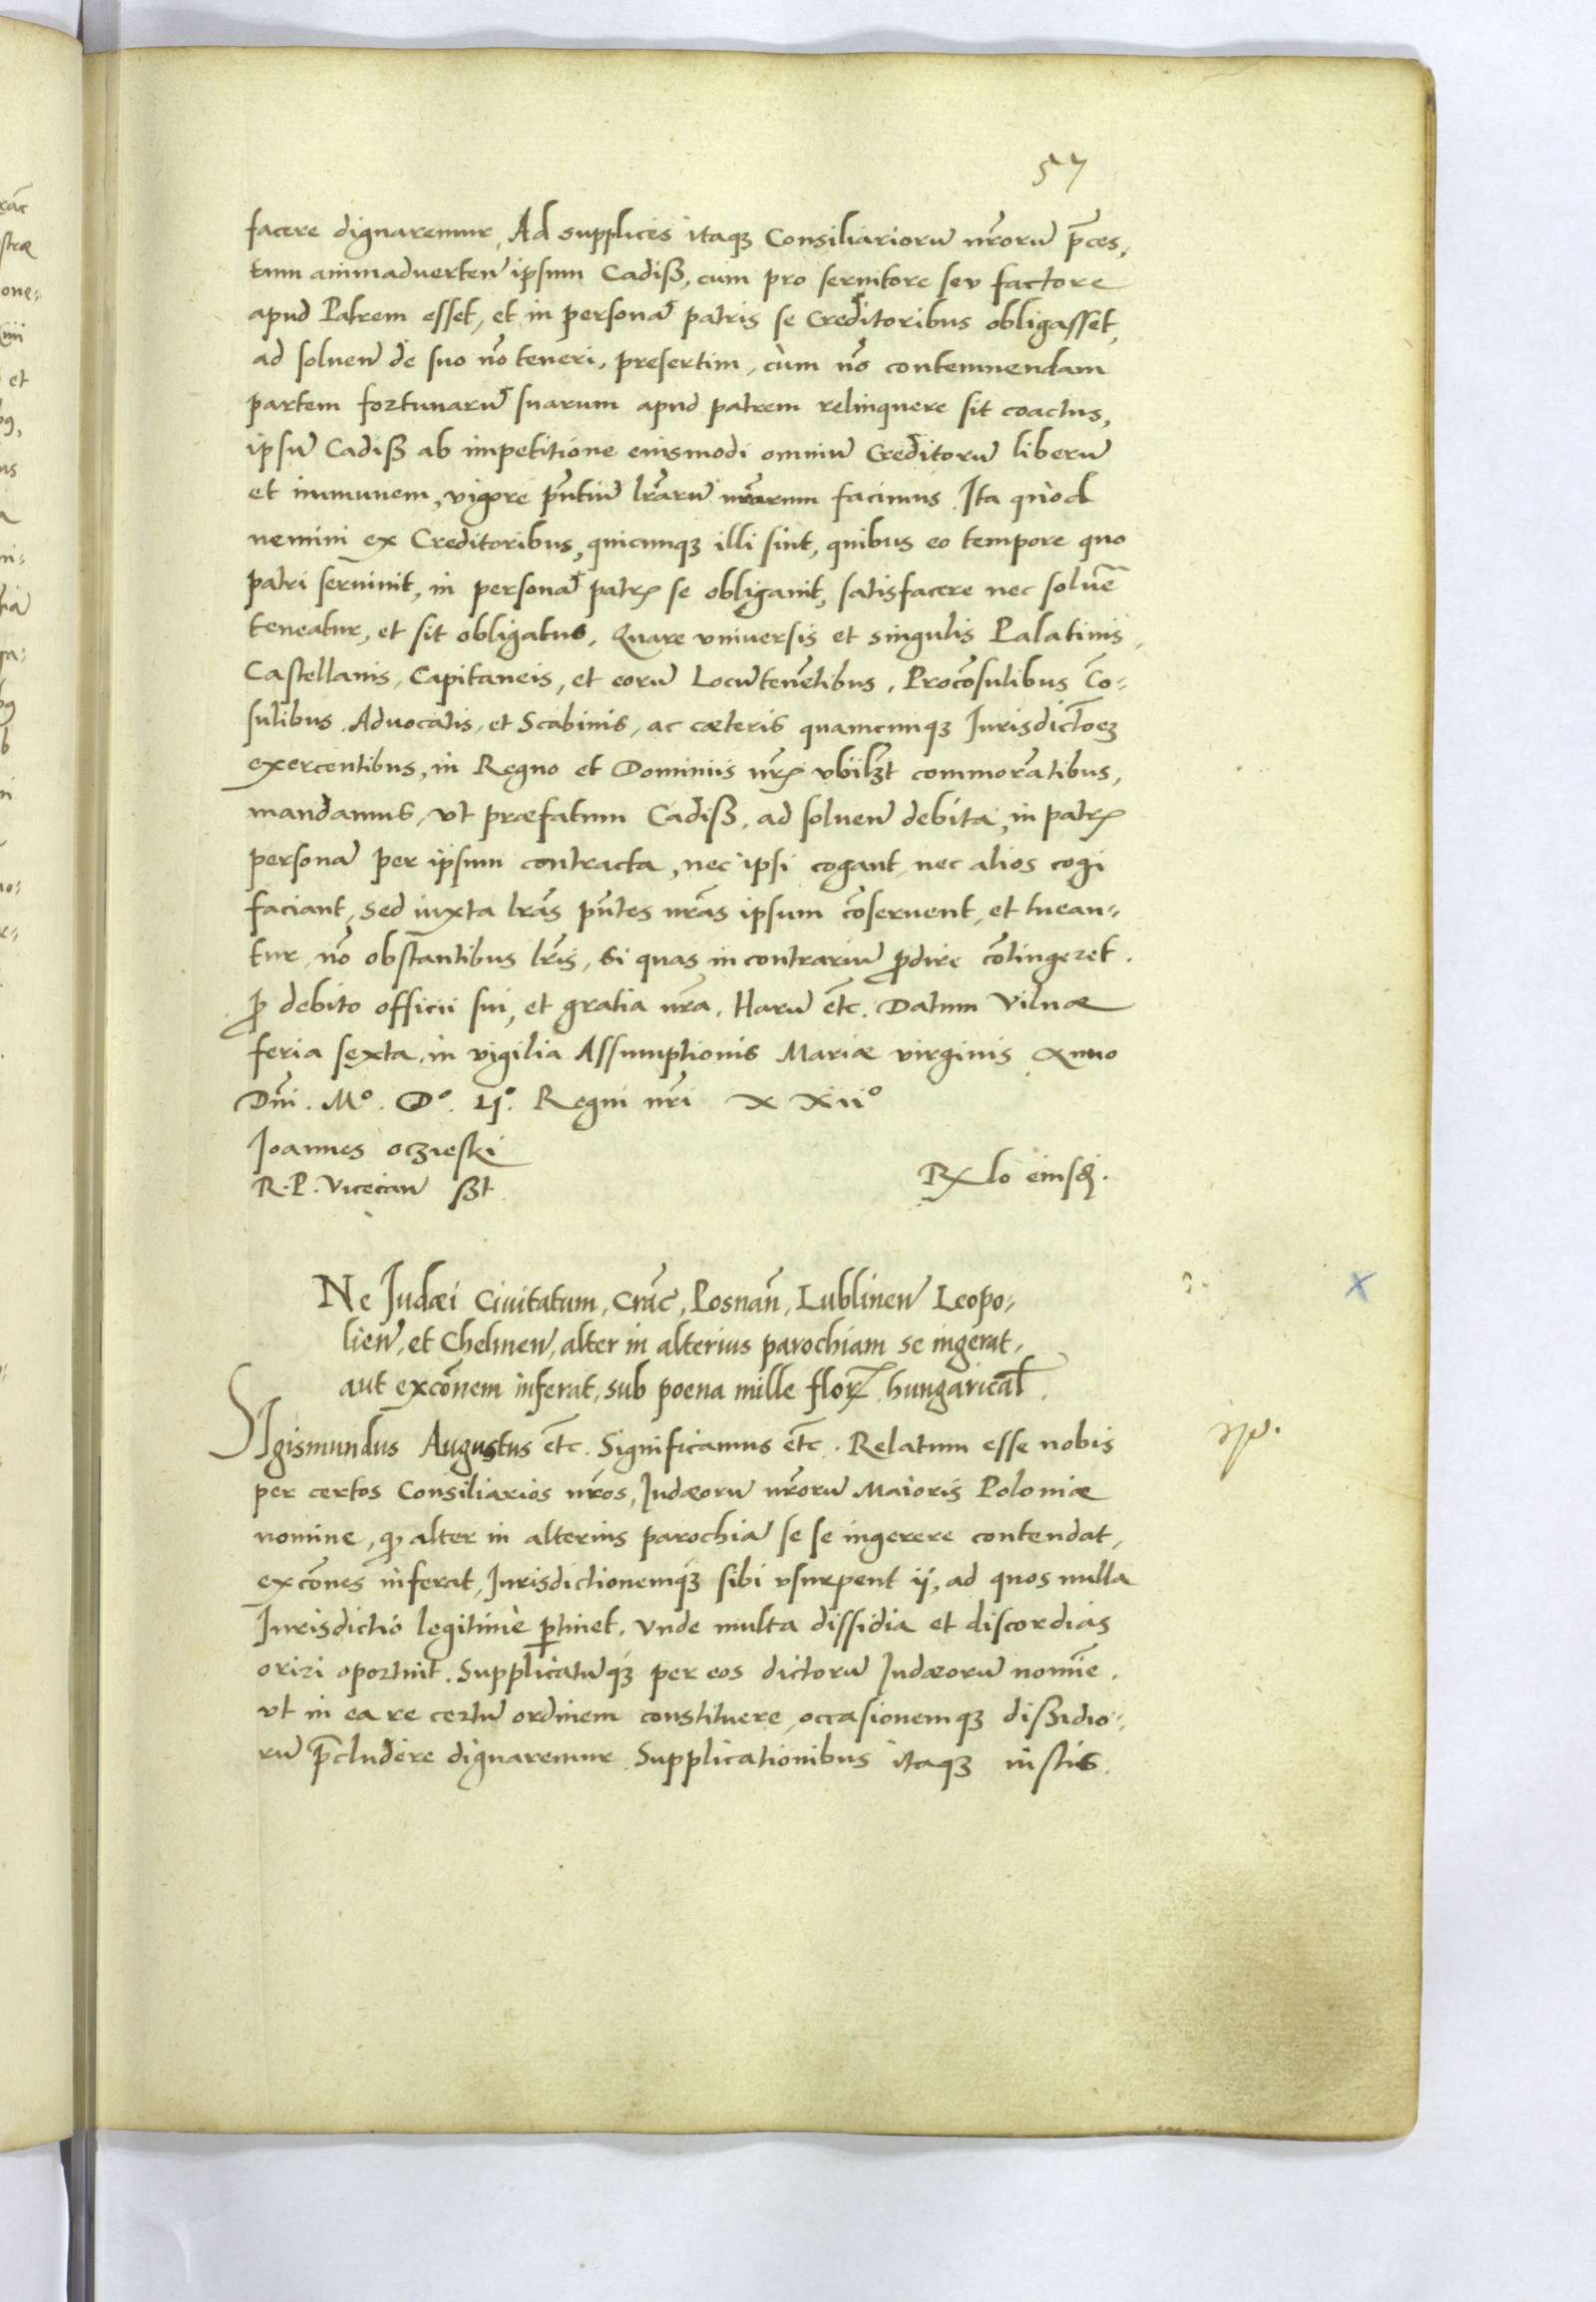 57
facere dignaremur, Ad supplices itaqʒ Consiliariorū nr̄orū p̄ces,
tum animaduerten̄ ipsum Cadiß, cum pro seruitore seu factore
apud Patrem esset, et in personā patris se Creditoribus obligasset,
ad soluen̄ de suo nō teneri, presertim, cùm nō contemnendam
partem fortunarū suarum apud patrem relinquere sit coactus,
ipsū Cadiß ab impetitione eiusmodi omniū Creditorū liberū
et immunem, vigore pn̄tiū lr̄arū nr̄arum facimus. Ita quòd
nemini ex Creditoribus, quicunqʒ illi sint, quibus eo tempore quo
patri seruiuit, in personā patrꝭ se obligauit, satisfacere nec soluē
teneatur, et sit obligatus. Quare vniuersis et singulis Palatinis,
Castellanis, Capitaneis, et eorū Locūtenētibus, Procōsulibus Cō-
sulibus, Advocatis, et Scabinis, ac cæteris quamcunqʒ Jurisdictōeʒ
exercentibus, in Regno et Dominiis nr̄ꝭ vbilʒt commorātibus,
mandamus, vt præfatum Cadiß, ad soluen̄ debita, in patrꝭ
personā per ipsum contracta, nec ipsi cogant, nec alios cogi
faciant, sed iuxta lr̄as pn̄tes nr̄as ipsum cōseruent, et tuean-
tur, nō obstantibus lr̄is, si quas in contrariū ꝓdire cōtingeret.
ꝓ debito officii sui, et gratia nr̄a. Harū etc̄. Datum Vilnæ
feria sexta, in vigilia Assumptionis Mariæ virginis Anno
Dn̄i. Mº. Dº. Ljº. Regni nr̄i XXIIº
Joannes oczieski
R. P. Vicecan̄ sʒt
Rꝭlo eiusdꝭ.
Ne Judæi Ciuitatum, Crac̄, Posnan̄, Lublinen̄ Leopo-
lien̄, et Chelmen̄, alter in alterius parochiam se ingerat,
aut excōnem inferat, sub poena mille florꝭ. hungarical̄.
SIgismundus Augustus etc̄. Significamus etc̄. Relatum esse nobis
per certos Consiliarios nr̄os, Judæorū nr̄orū Maioris Poloniæ
nomine, ꝙ alter in alterius parochiā se se ingerere contendat,
excōnes inferat, Jurisdictionemqʒ sibi vsurpent ij, ad quos nulla
Jurisdictio legitimè ꝑtinet. Vnde multa dissidia et discordias
oriri oportuit. Supplicatūqʒ per eos dictorū Judæorū nomīe.
vt in ea re certū ordinem constituere, occasionemqʒ dißidio-
rū p̄cludere dignaremur. Supplicationibus itaqʒ iustis